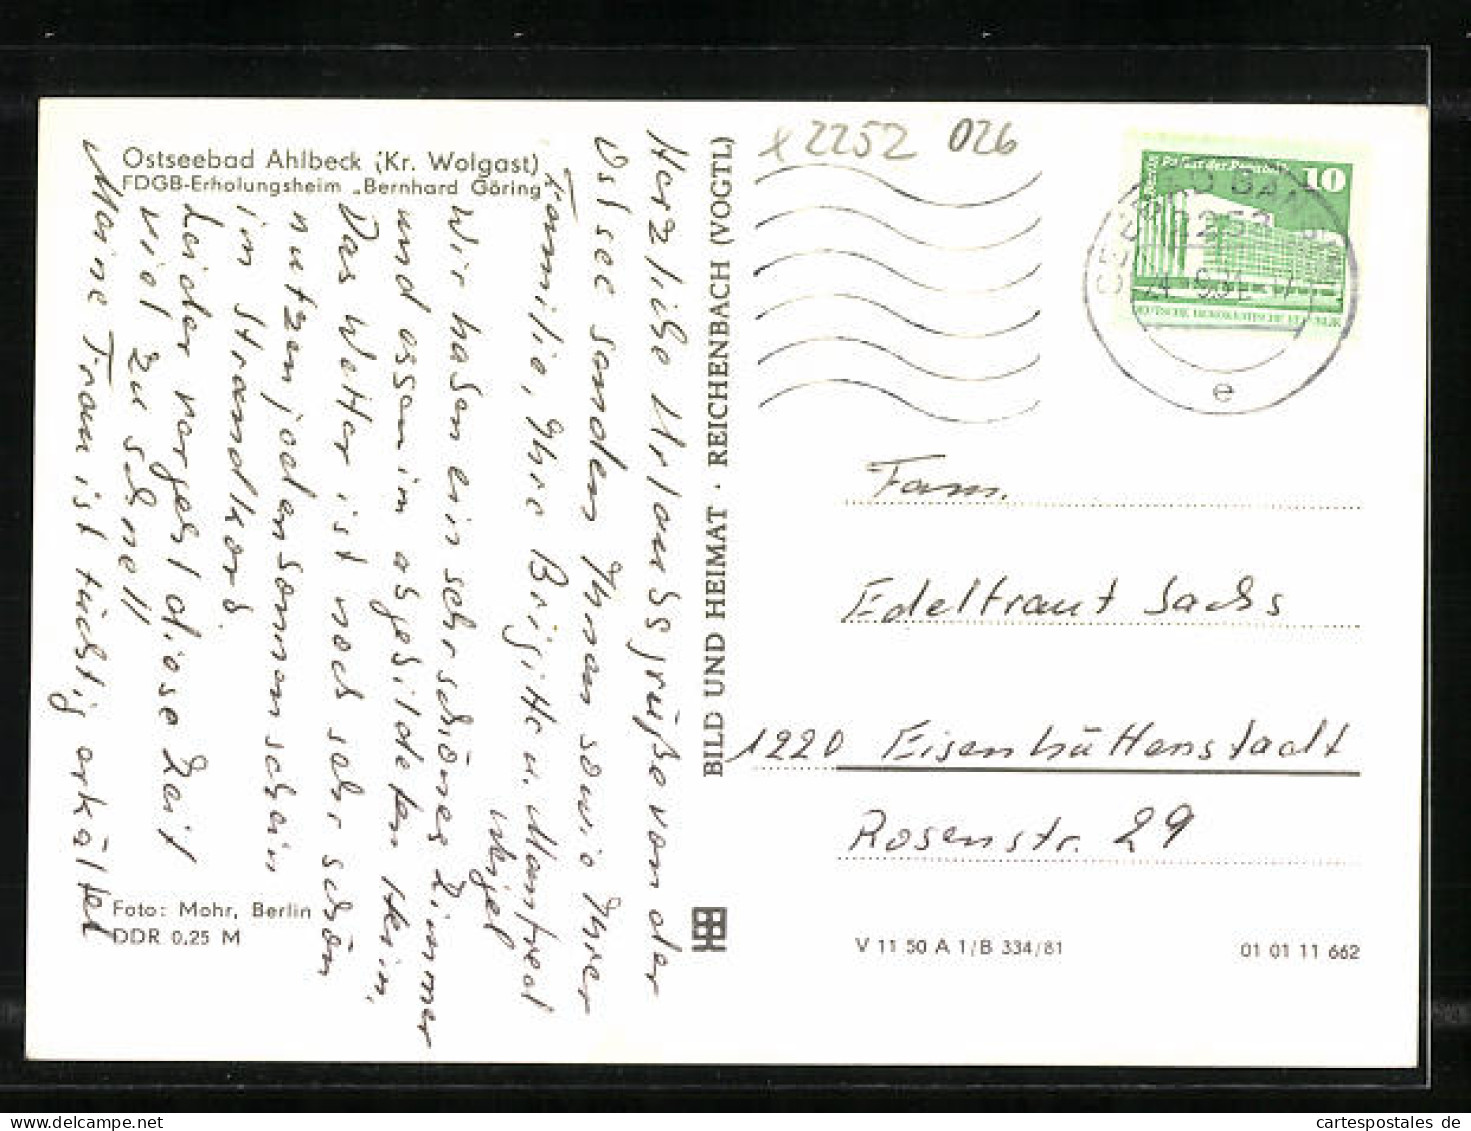 Ostseebad Ahlbeck (Kr. Wolgast)
FDGB-Erholungsheim „Bernhard Göring"
Herzliche Urlaubsgrüße von der
Ostsee senden Ihnen sowie Ihrer
Familie, Ihre Brigitte u. Manfred
Wir haben ein sehr schönes Zimmer
und essen in abgebildeten Heim.
Das Wetter ist noch sehr schön
nutzen jeden Sonnenschein
im Strandkorb.
Leider vergeht diese Zeit
viel zu schnell
Meine Frau ist tüchtig erkältet
Foto: Mohr, Berlin
DDR 0,25 M
BILD UND HEIMAT · REICHENBACH (VOGTL)
x 2252 026
10
Fam.
Edeltraut Sachs
1220 Eisenhüttenstadt
Rosenstr. 29
V 11 50 A 1/B 334/81
01 01 11 662
e
cartespostales de